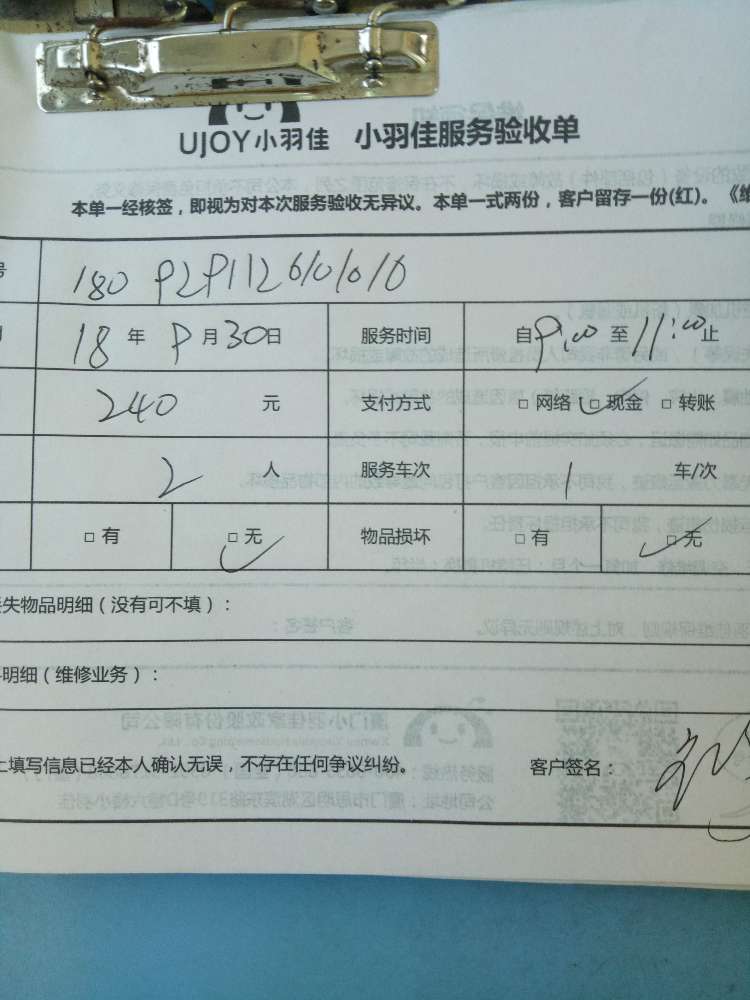 UJOY小羽佳 小羽佳服务验收单
本单一经核签，即视为对本次服务验收无异议。本单一式两份，客户留存一份(红)。《维
号 180 9291126101010
18 年 9 月 30 日 服务时间 自 9:00 至 11:00 止
240 元 支付方式 □ 网络 □ 现金 □ 转账
2 人 服务车次 1 车/次
□ 有 □ 无 物品损坏 □ 有 □ 无
失物品明细（没有可不填）：
明细（维修业务）：
上填写信息已经本人确认无误，不存在任何争议纠纷。 客户签名：